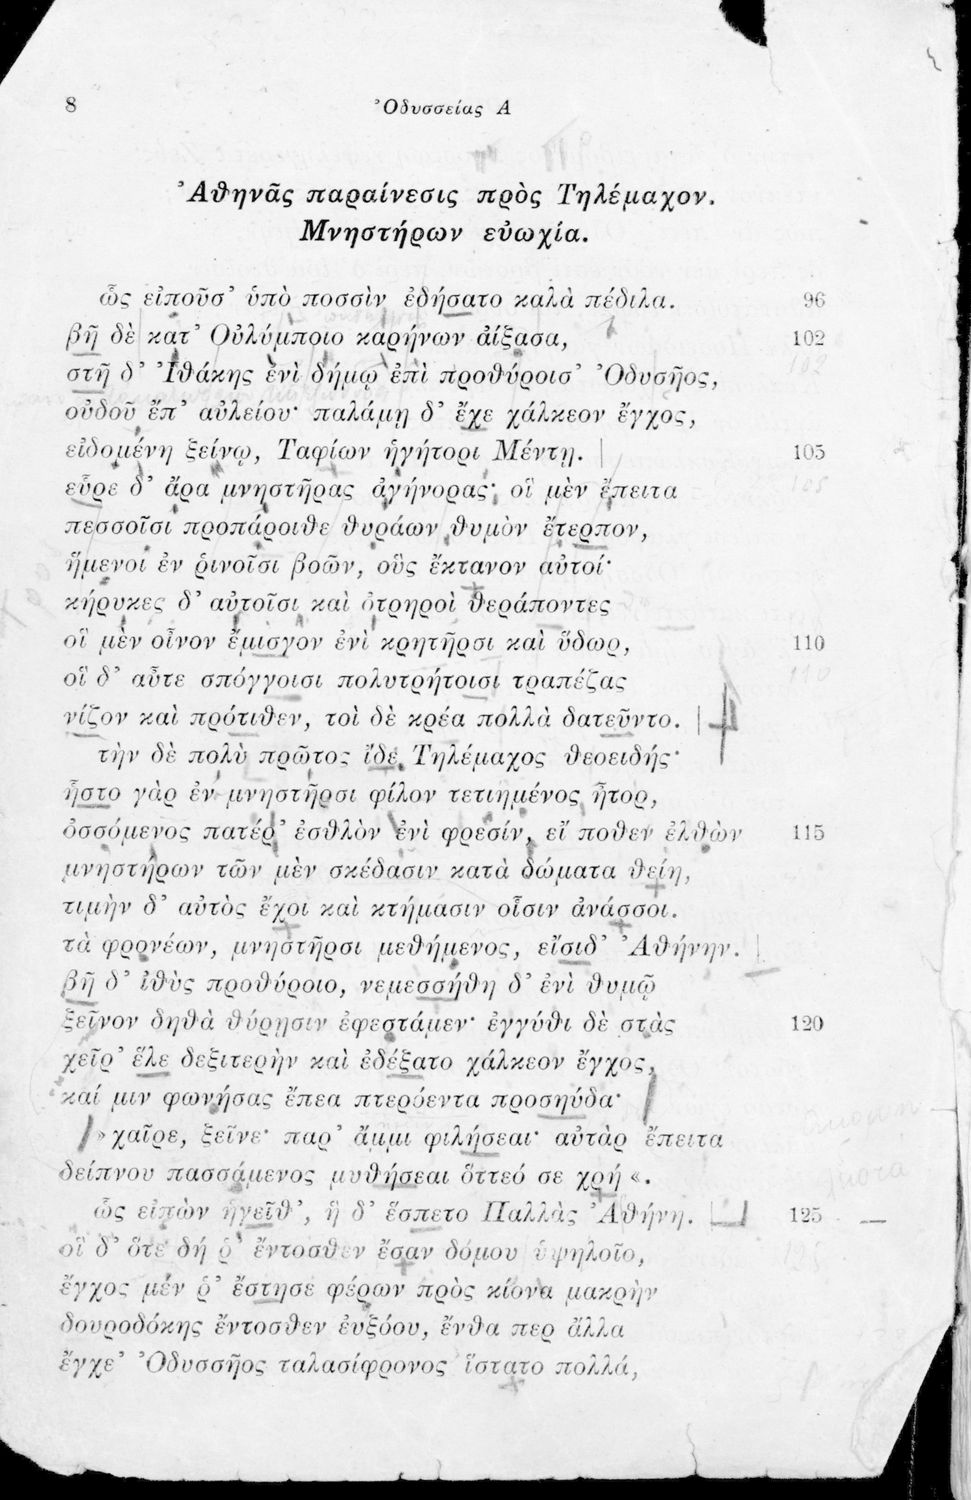 8 Ὀδυσσείας Α
Ἀθηνᾶς παραίνεσις πρὸς Τηλέμαχον.
Μνηστήρων εὐωχία.
ὣς εἰποῦσ’ ὑπὸ ποσσὶν ἐδήσατο καλὰ πέδιλα. 96
βῆ δὲ κατ’ Οὐλύμποιο καρήνων ἀίξασα, 102
στῆ δ’ Ἰθάκης ἐνὶ δήμῳ ἐπὶ προθύροισ’ Ὀδυσῆος,
οὐδοῦ ἔπ’ αὐλείου· παλάμῃ δ’ ἔχε χάλκεον ἔγχος,
εἰδομένη ξείνῳ, Ταφίων ἡγήτορι Μέντῃ. 105
εὗρε δ’ ἄρα μνηστῆρας ἀγήνορας· οἳ μὲν ἔπειτα
πεσσοῖσι προπάροιθε θυράων θυμὸν ἔτερπον,
ἥμενοι ἐν ῥινοῖσι βοῶν, οὓς ἔκτανον αὐτοί·
κήρυκες δ’ αὐτοῖσι καὶ ὀτρηροὶ θεράποντες
οἳ μὲν οἶνον ἔμισγον ἐνὶ κρητῆρσι καὶ ὕδωρ, 110
οἳ δ’ αὖτε σπόγγοισι πολυτρήτοισι τραπέζας
νίζον καὶ πρότιθεν, τοὶ δὲ κρέα πολλὰ δατεῦντο.
τὴν δὲ πολὺ πρῶτος ἴδε Τηλέμαχος θεοειδής·
ἧστο γὰρ ἐν μνηστῆρσι φίλον τετιημένος ἦτορ,
ὀσσόμενος πατέρ’ ἐσθλὸν ἐνὶ φρεσίν, εἴ ποθεν ἐλθὼν 115
μνηστήρων τῶν μὲν σκέδασιν κατὰ δώματα θείη,
τιμὴν δ’ αὐτὸς ἔχοι καὶ κτήμασιν οἷσιν ἀνάσσοι.
τὰ φρονέων, μνηστῆρσι μεθήμενος, εἴσιδ’ Ἀθήνην.
βῆ δ’ ἰθὺς προθύροιο, νεμεσσήθη δ’ ἐνὶ θυμῷ
ξεῖνον δηθὰ θύρῃσιν ἐφεστάμεν· ἐγγύθι δὲ στὰς 120
χεῖρ’ ἕλε δεξιτερὴν καὶ ἐδέξατο χάλκεον ἔγχος,
καί μιν φωνήσας ἔπεα πτερόεντα προσηύδα·
»χαῖρε, ξεῖνε· παρ’ ἄμμι φιλήσεαι· αὐτὰρ ἔπειτα
δείπνου πασσάμενος μυθήσεαι ὅττεό σε χρή«.
ὣς εἰπὼν ἡγεῖθ’, ἣ δ’ ἕσπετο Παλλὰς Ἀθήνη. 125
οἳ δ’ ὅτε δή ῥ’ ἔντοσθεν ἔσαν δόμου ὑψηλοῖο,
ἔγχος μέν ῥ’ ἔστησε φέρων πρὸς κίονα μακρὴν
δουροδόκης ἔντοσθεν ἐυξόου, ἔνθα περ ἄλλα
ἔγχε’ Ὀδυσσῆος ταλασίφρονος ἵστατο πολλά,